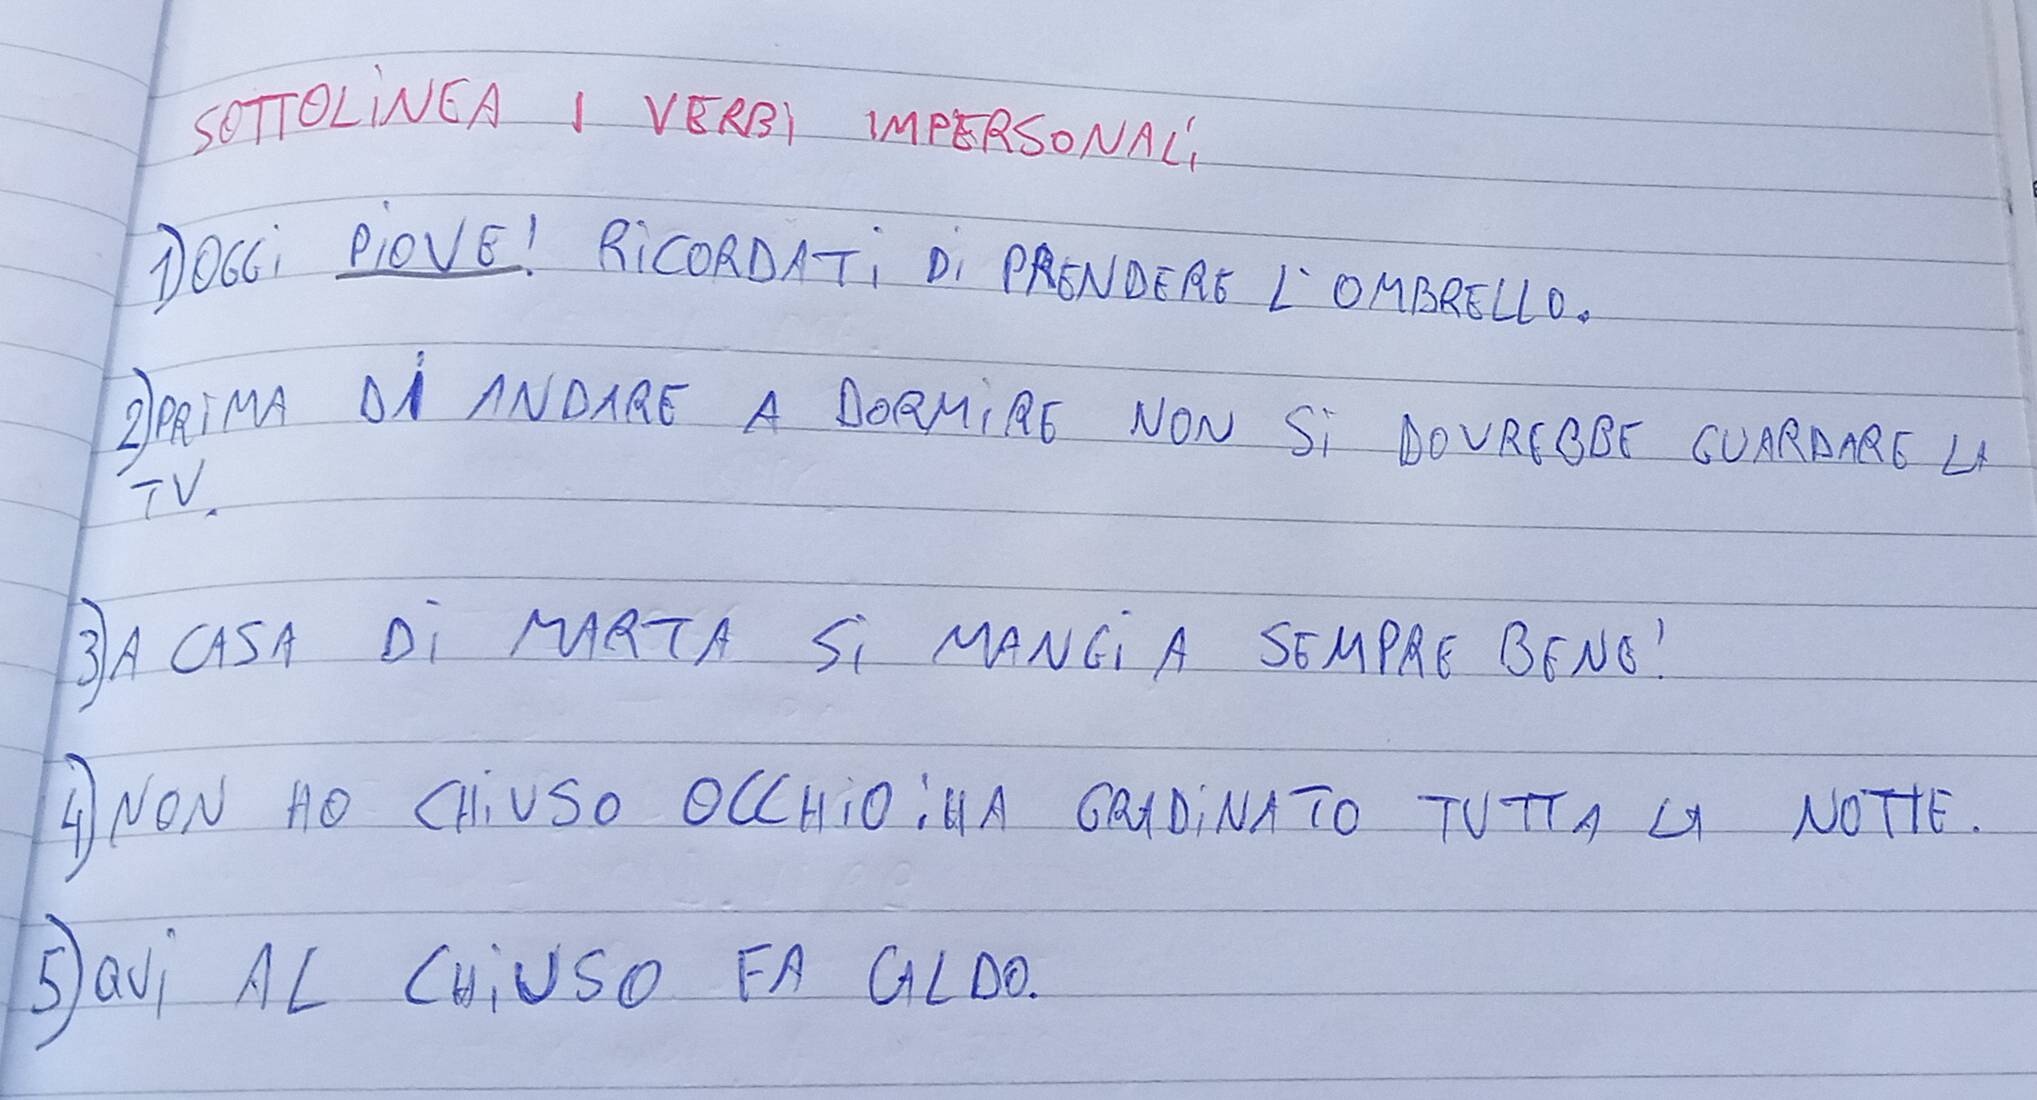 SOTTOLINEA I VERBI IMPERSONALI
1) OGGI PIOVE! RICORDATI DI PRENDERE L'OMBRELLO.
2) PRIMA DI ANDARE A DORMIRE NON SI DOVREBBE GUARDARE LA
TV.
3) A CASA DI MARTA SI MANGIA SEMPRE BENE!
4) NON HO CHIUSO OCCHIO: HA GRADINATO TUTTA LA NOTTE.
5) QUI AL CHIUSO FA CALDO.